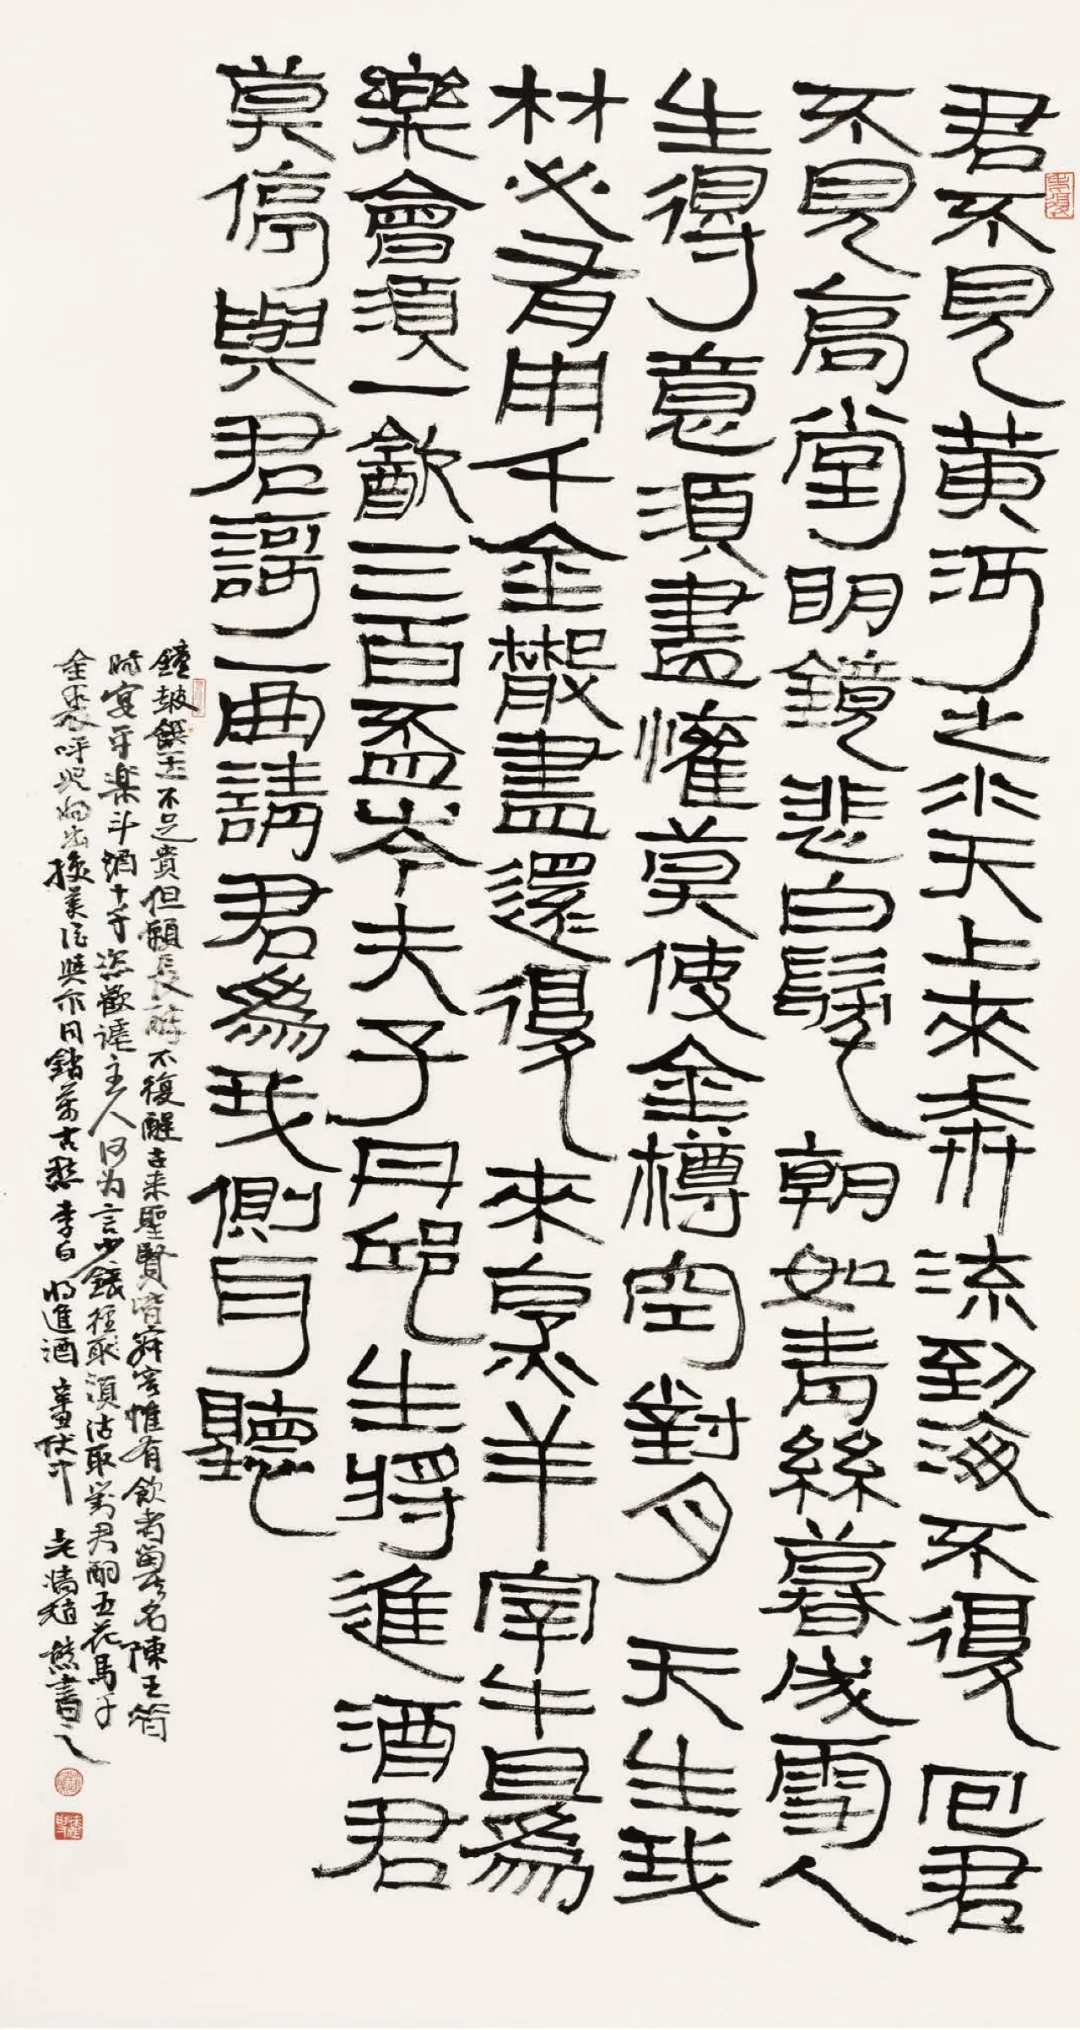 君不見黄河之水天上來奔流到海不復回君
不見高堂明鏡悲白髮朝如青絲暮成雪人
生得意須盡懽莫使金樽空對月天生我
材必有用千金散盡還復來烹羊宰牛且為
樂會須一飲三百盃岑夫子丹邱生將進酒君
莫停與君謌一曲請君為我側耳聽
鐘鼓饌玉不足貴但願長醉不復醒古来聖賢皆寂寞惟有飲者留其名陳王昔
時宴平樂斗酒十千恣歡謔主人何为言少錢徑取須沽取對君酌五花馬千
金裘呼児将出換美酒與尔同銷萬古愁李白将進酒